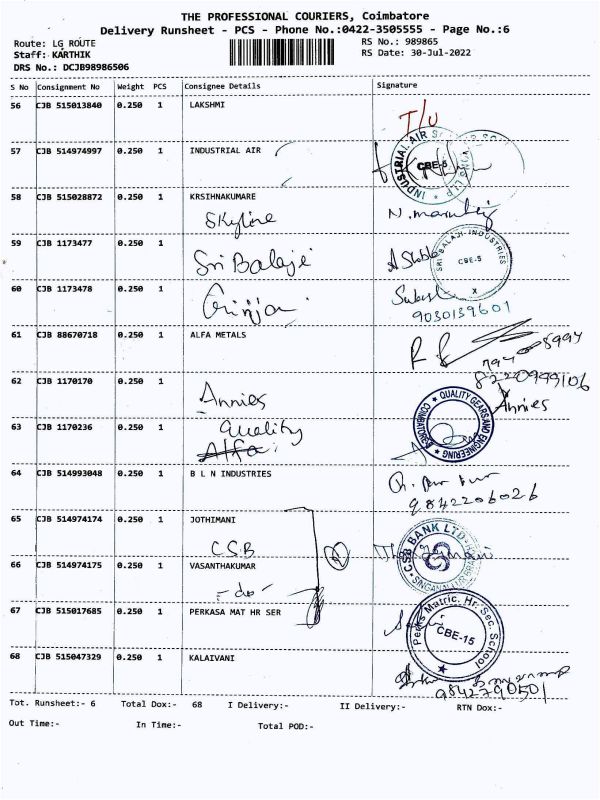 THE PROFESSIONAL COURIERS, Coimbatore
Delivery Runsheet - PCS - Phone No.:0422-3505555 - Page No.:6
Route: LG ROUTE RS No.: 989865
Staff: KARTHIK RS Date: 30-Jul-2022
DRS No.: DCJB98986506
S No Consignment No Weight PCS Consignee Details Signature
56 CJB 515013840 0.250 1 LAKSHMI
T/U
57 CJB 514974997 0.250 1 INDUSTRIAL AIR
INDUSTRIAL AIR CBE-5
58 CJB 515028872 0.250 1 KRSIHNAKUMARE
Skyline
59 CJB 1173477 0.250 1
Sri Balaji
SRI BALAJI INDUSTRIES CBE-5
60 CJB 1173478 0.250 1
9030139601
61 CJB 88670718 0.250 1 ALFA METALS
62 CJB 1170170 0.250 1
Annies
8220999106
Annies
63 CJB 1170236 0.250 1
Quality
Alfa
QUALITY GEARS AND ENGINEERING COIMBATORE
64 CJB 514993048 0.250 1 B L N INDUSTRIES
9842206026
65 CJB 514974174 0.250 1 JOTHIMANI
CSB
CSB BANK LTD
66 CJB 514974175 0.250 1 VASANTHAKUMAR
-do-
67 CJB 515017685 0.250 1 PERKASA MAT HR SER
Matric. Hr. Sec. School CBE-15
68 CJB 515047329 0.250 1 KALAIVANI
9842790501
Tot. Runsheet:- 6 Total Dox:- 68 I Delivery:- II Delivery:- RTN Dox:-
Out Time:- In Time:- Total POD:-